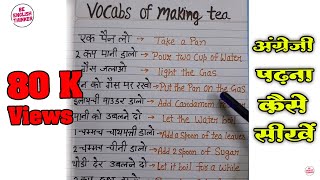 RK ENGLISH THINKER
Vocabs of making tea
एक पैन लो → Take a Pan
2 कप पानी डालो → Pour two Cup of Water
गैस जलाओ → light the Gas
को गैस पर रखो → Put the Pan on the Gas
इलायची पाउडर डालो → Add Candamom
पानी को उबलने दो → Let the Water boil
1 चम्मच चायपत्ती डालो → Add a Spoon of tea leaves
2 चम्मच चीनी डालो → Add 2 spoon of Sugar
थोड़ी देर उबलने दो → Let it boil for a While
80 K
Views
अंग्रेजी
पढ़ना
कैसे
सीखें